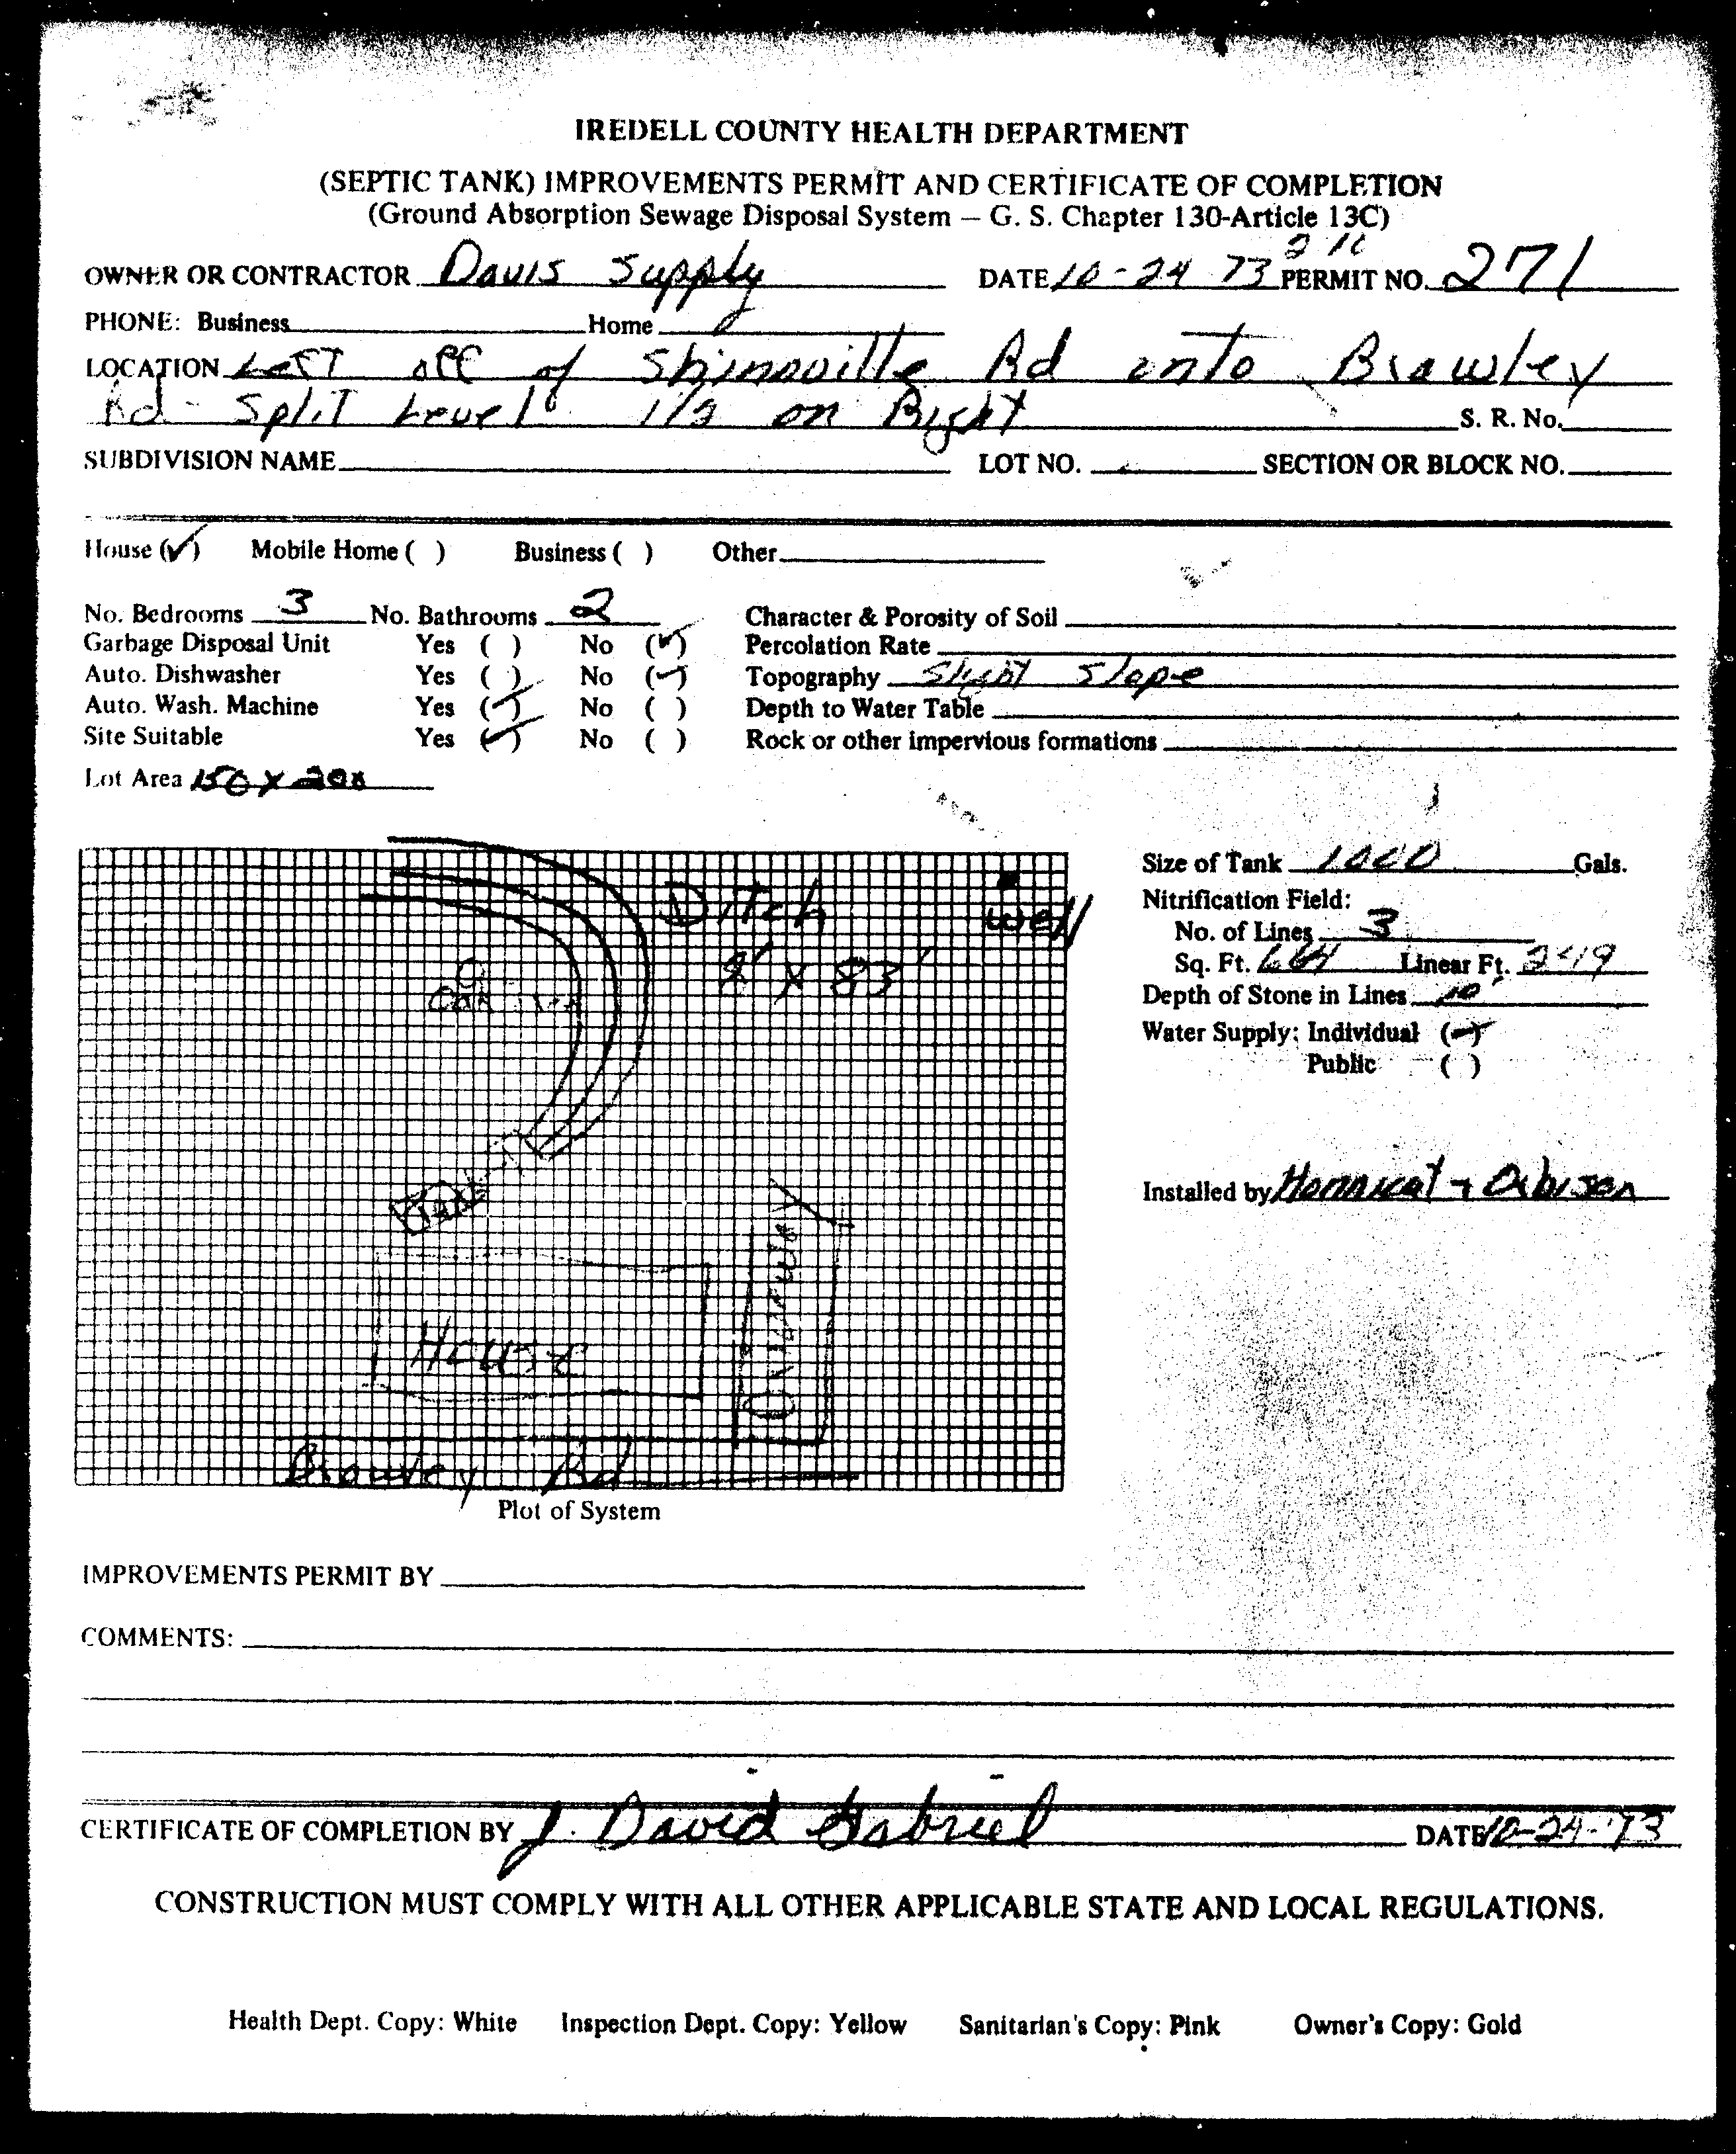 IREDELL COUNTY HEALTH DEPARTMENT
(SEPTIC TANK) IMPROVEMENTS PERMIT AND CERTIFICATE OF COMPLETION
(Ground Absorption Sewage Disposal System — G. S. Chapter 130-Article 13C)
OWNER OR CONTRACTOR Davis Supply DATE 10-24 73 PERMIT NO. 271
PHONE: Business Home
LOCATION Left off of Shinnville Rd onto Brawley
Rd - Split Level on Right S. R. No.
SUBDIVISION NAME LOT NO. SECTION OR BLOCK NO.
House (✓) Mobile Home ( ) Business ( ) Other
No. Bedrooms 3 No. Bathrooms 2 Character & Porosity of Soil
Garbage Disposal Unit Yes ( ) No (✓) Percolation Rate
Auto. Dishwasher Yes ( ) No (✓) Topography Slight Slope
Auto. Wash. Machine Yes (✓) No ( ) Depth to Water Table
Site Suitable Yes (✓) No ( ) Rock or other impervious formations
Lot Area 150 X 200
Size of Tank 1000 Gals.
Nitrification Field:
No. of Lines 3
Sq. Ft. 664 Linear Ft. 249
Depth of Stone in Lines 10"
Water Supply: Individual (✓)
Public ( )
Installed by
Ditch
X 83'
well
Tank
House
Driveway
Brawley Rd
Plot of System
IMPROVEMENTS PERMIT BY
COMMENTS:
CERTIFICATE OF COMPLETION BY J. David Gabriel DATE 10-24-73
CONSTRUCTION MUST COMPLY WITH ALL OTHER APPLICABLE STATE AND LOCAL REGULATIONS.
Health Dept. Copy: White Inspection Dept. Copy: Yellow Sanitarian's Copy: Pink Owner's Copy: Gold